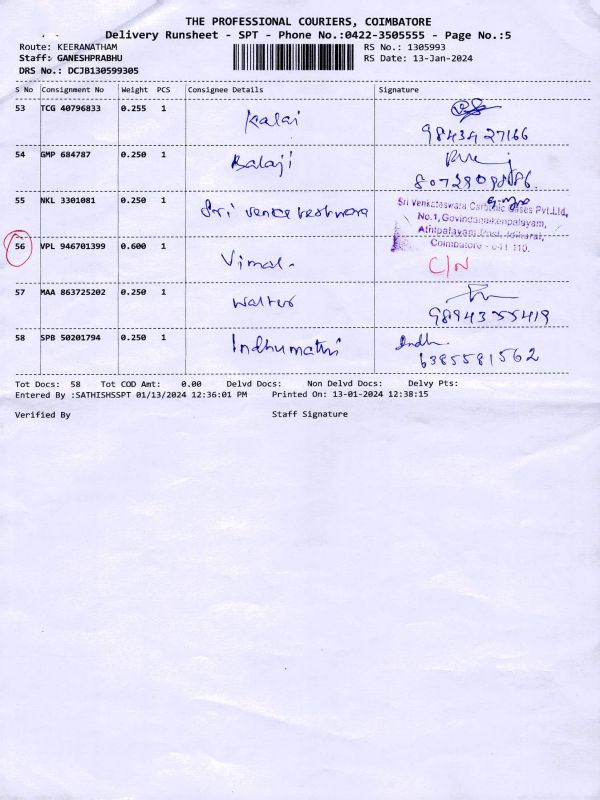 THE PROFESSIONAL COURIERS, COIMBATORE
Delivery Runsheet - SPT - Phone No.:0422-3505555 - Page No.:5
Route: KEERANATHAM RS No.: 1305993
Staff: GANESHPRABHU RS Date: 13-Jan-2024
DRS No.: DCJB130599305
S No Consignment No Weight PCS Consignee Details Signature
53 TCG 40796833 0.255 1 Kalai
9843427166
54 GMP 684787 0.250 1 Balaji
55 NKL 3301081 0.250 1 Sri venkateshwara
Sri Venkateswara Carbonic Gases Pvt.Ltd,
No.1, Govindanaickenpalayam,
Athipalayam Post, Idikarai,
Coimbatore - 641 110.
56 VPL 946701399 0.600 1 Vimal. C/N
57 MAA 863725202 0.250 1 Walter
98943 55419
58 SPB 50201794 0.250 1 Indhumathi Indh.
6385581562
Tot Docs: 58 Tot COD Amt: 0.00 Delvd Docs: Non Delvd Docs: Delvy Pts:
Entered By :SATHISHSSPT 01/13/2024 12:36:01 PM Printed On: 13-01-2024 12:38:15
Verified By Staff Signature